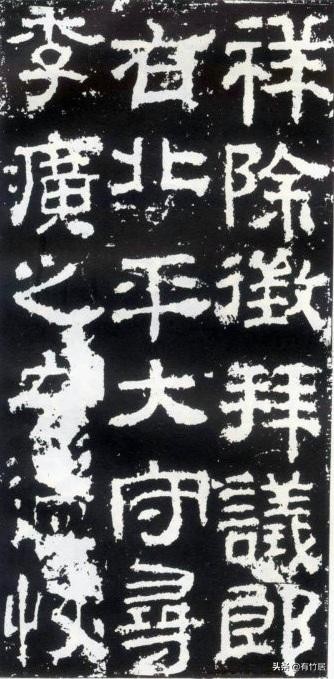 祥除徵拜議郎
右北平大守尋
李廣之恢
头条 @有竹居